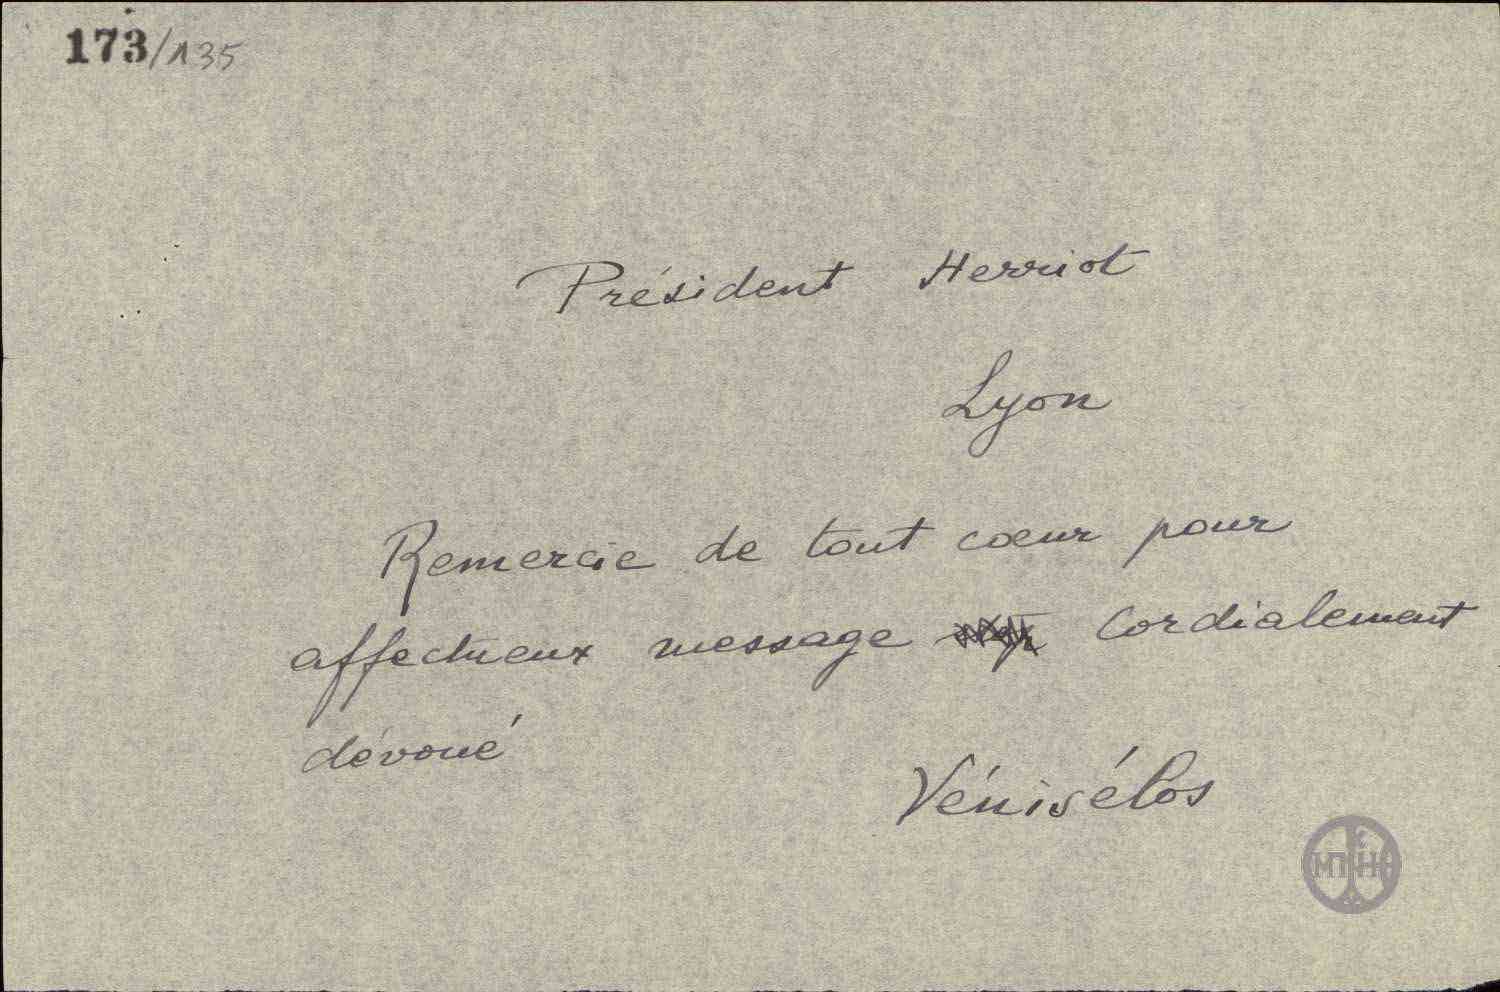 173/135
Président Herriot
Lyon
Remercie de tout coeur pour
affectueux message cordialement
dévoué
Vénisélos